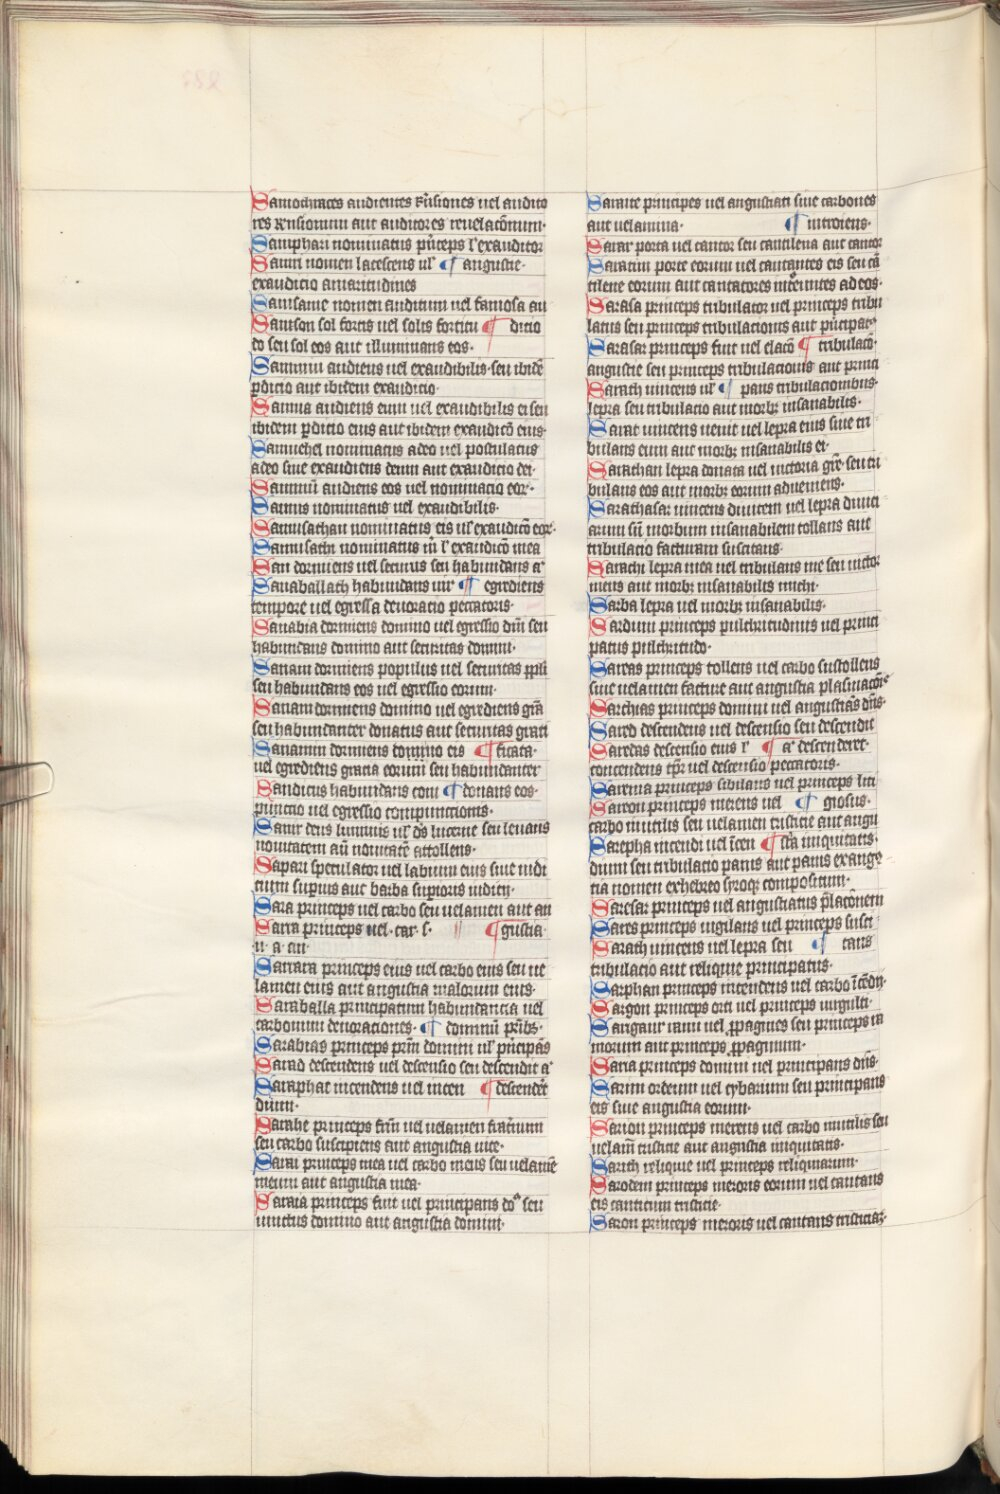 Samothraces audientes rͥsiones uel audito
res rͥnsionum aut auditores reuelacōnum·
Samphari nominatus pͥnceps l' exauditor
Samri nomen lacescens ul' ¶ angustie·
exauditio amaritudines
Samsame nomen auditum uel famosa au
Samson sol fortis uel solis fortitu ¶ ditio
do seu sol eos aut illuminans eos·
Sammu audiens uel exaudibilis· seu ibidē
pditio aut ibidem exauditio·
Samua audiens eum uel exaudibilis ei seu
ibidem pditio eius aut ibidem exauditō eius·
Samuhel nominatus a deo uel postulatus
a deo siue exaudiens deum aut exauditio dei·
Sammū audiens eos uel nominatio eoꝝ·
Samus nominatus uel exaudibilis·
Samusathan nominatus eis ul' exauditō eoꝝ·
Samusathi nominatus m̄ l' exauditō mea
San dormiens uel securus seu habundans aͬ
Sanaballath habundans uir ¶ egrediens
tempore uel egressa deuoratio peccatoris·
Sanabia dormiens domino uel egressio dn̄i seu
habundans domino aut securitas domini·
Sanam dormiens populus uel securitas ppli
seu habundans eos uel egressio eorum·
Sanam dormiens domino uel egrediens gr̄a
seu habundanter donatus aut securitas grati
Sanamin dormiens domino eis ¶ ficata·
uel egrediens gracia eorum seu habundanter
Sanditus habundans com ¶ donans eos·
punctio uel egressio compunctionis·
Sanir dens luminis ul' dēs lucerne seu leuans
nouitatem aū nouitatē attollens·
Sapari speculator uel labium eius siue iudi
cium supius aut barba supioris iudicij·
Sara princeps uel carbo seu uelamen aut an
Sarra princeps uel· car· s· ¶ gustia·
u· a· an·
Sarrara princeps eius uel carbo eius seu ue
lamen eius aut angustia malorum eius·
Saraballa principatum habundancia uel
carbonum deuorationes· ¶ dominū pr̄bs·
Sarabias princeps pr̄m domini ul' pͥncipās
Sarad descendens uel descensio seu descendit aͬ
Saraphat incendens uel incen ¶ descendēt
dium·
Sarahe princeps fr̄m uel uelamen fratrum
seu carbo suscipiens aut angustia uite·
Sarai princeps mea uel carbo meus seu uelamē
meum aut angustia mea·
Saraia princeps fuit uel principans dōͦ seu
uinctus domino aut angustia domini·
Saraite principes uel angustiati siue carbones
aut uelamina· ¶ introiens·
Sarar porta uel cantor seu cantilena aut cantor
Sararim porte eorum uel cantantes eis seu cā
tilene eorum aut cantatores introeuntes ad eos·
Sarasa princeps tribulator uel princeps tribu
latus seu princeps tribulationis aut pͥncipatͬ
Sarasar princeps fuit uel elatō ¶ tribulatō·
angustie seu princeps tribulationis aut princi
Sarath uincens ul' ¶ pans tribulationibus·
lepra seu tribulatio aut morbꝫ insanabilis·
Sarat uincens uenit uel lepra eius siue tri
bulans eum aut morbꝫ insanabilis ei·
Sarathan lepra donata uel uictoria gr̄e· seu tri
bulans eos aut morbꝫ eorum adueniens·
Sarathasar uincens diuitem uel lepra diuici
arum siū morbum insanabilem tollans aut
tribulatio facturam suscitans·
Sarathi lepra mea uel tribulans me seu uictor
meus aut morbꝫ insanabilis michi·
Sarba lepra uel morbꝫ insanabilis·
Sardum princeps pulchritudinis uel princi
patus pulchritudo·
Sareas princeps tollens uel carbo sustollens
siue uelamen facture aut angustia plasmacōis
Sarchias princeps domini uel angustians dn̄s·
Sared descendens uel descensio seu descendit
Saredas descensio eius l' ¶ aͬ descenderet·
contendens tp̄r uel descensio peccatoris·
Saremia princeps sibilans uel princeps liti
Sareon princeps merens uel ¶ giosus·
carbo inutilis seu uelamen tristicie aut angu
Sarepha incendi uel īcen ¶ stīa iniquitatis·
dium seu tribulatio panis aut panis exange
ria nomen ex hebreo syroqꝫ compositum·
Saresar princeps uel angustiatus p̄lacōnem
Sares princeps uigilans uel princeps susci
Sarath uincens uel lepra seu ¶ tans
tribulatio aut relique principatus·
Sarphan princeps incendens uel carbo īcēdij·
Sargon princeps orti uel princeps uirgulti·
Sargaur ianu uel ppagines seu princeps ia
morum aut princeps ppaginum·
Saria princeps domini uel principans dn̄s·
Sarim ordeum uel cybarium seu principans
eis siue angustia eorum·
Sarion princeps merens uel carbo inutilis seu
uelam̄ tristicie aut angustia iniquitatis·
Sarith relique uel princeps reliquiarum·
Sarodem princeps meroris eorum uel cantans
eis canticum tristicie·
Saron princeps meroris uel cantans tristiciaꝫ·